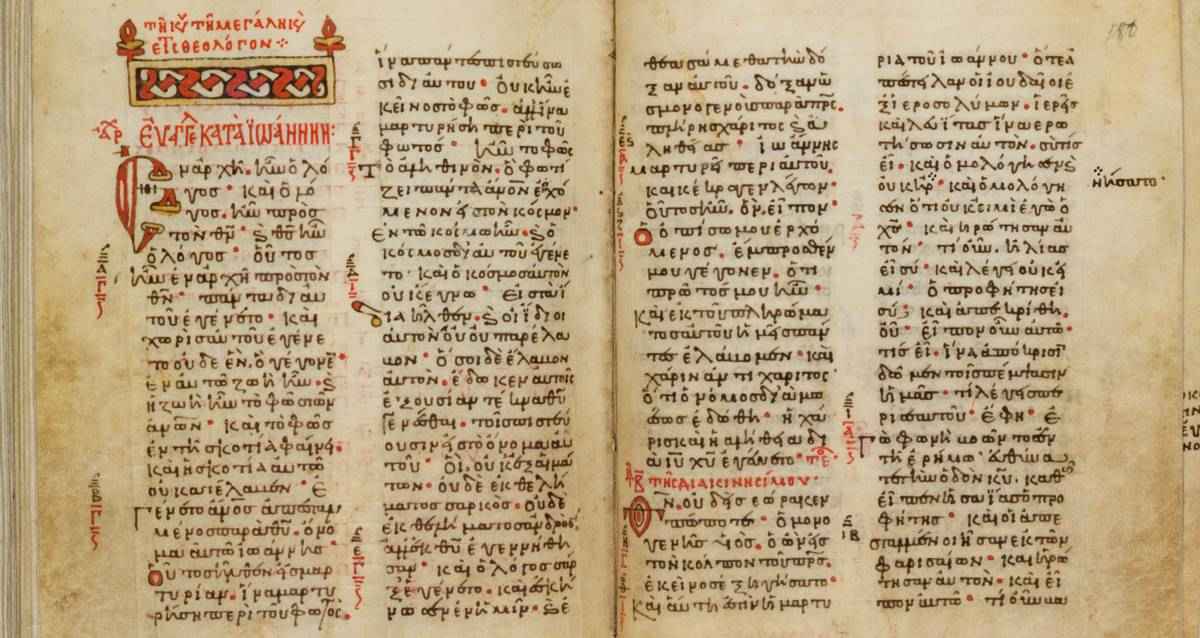 ἐν ἀρχῆ ἦν ὁ λό
γος · καὶ ὁ λό
γος ἦν πρὸς
τὸν θν · ϗ θς ἦν
ὁ λόγος · οὗτος
ἦν ἐν ἀρχῆ πρὸς τὸν
θν · πάντα δι αὐ
τοῦ ἐγένετο · καὶ
χωρὶς αὐτοῦ ἐγένε
το οὐδὲ ἕν · ὃ γέγονεν ·
ἐν αὐτῶ ζωὴ ἦν · ϗ
ἡ ζωὴ ἦν τὸ φῶς τῶν
ἀνων · καὶ τὸ φῶς
ἐν τῆ σκοτία φαίνει ·
καὶ ἡ σκοτία αὐτὸ
οὐ κατέλαβεν · ἐ
γένετο ἄνος ἀπεσταλ
μένος παρὰ θυ · ὄνο
μα αὐτῶ ἰωάννης ·
οὗτος ἦλθεν εἰς μαρ
τυρίαν · ἵνα μαρτυ
ρήση περὶ τοῦ φωτός ·
ἵνα πάντες πιστεύσω
σι δι αὐτοῦ · οὐκ ἦν ἐ
κεῖνος τὸ φῶς · ἀλλ ἵνα
μαρτυρήση περὶ τοῦ
φωτός · ἦν τὸ φῶς
τὸ ἀληθινόν · ὃ φωτί
ζει πάντα ἄνον ἐρχό
μενον εἰς τὸν κόσμον ·
ἐν τῶ κόσμω ἦν · ϗ ὁ
κόσμος δι αὐτοῦ ἐγένε
το · καὶ ὁ κόσμος αὐτὸν
οὐκ ἔγνω · εἰς τὰ ἴ
δια ἦλθεν · ϗ οἱ ἴδιοι
αὐτὸν οὐ παρέλα
βον · ὅσοι δὲ ἔλαβον
αὐτόν · ἔδωκεν αὐτοῖς
ἐξουσίαν τέκνα θυ
γενέσθαι · τοῖς πιστεύ
ουσιν εἰς τὸ ὄνομα αὐ
τοῦ · οἳ οὐκ ἐξ αἱμά
των · οὐδὲ ἐκ θελή
ματος σαρκός · οὐδὲ
ἐκ θελήματος ἀνδρός ·
ἀλλ ἐκ θυ ἐγεννήθη
σαν · καὶ ὁ λόγος σὰρ
ξ ἐγένετο · καὶ ἐσκή
νωσεν ἐν ἡμῖν · ϗ ἐ
θεασάμεθα τὴν δό
ξαν αὐτοῦ · δόξαν ὡς
μονογενοῦς παρὰ πρς ·
πλήρης χάριτος ϗ ἀ
ληθείας · ἰωάννης
μαρτυρεῖ περὶ αὐτοῦ ·
καὶ κέκραγεν λέγων ·
οὗτος ἦν · ὃν εἶπον ·
ὁ ὀπίσω μου ἐρχό
μενος · ἔμπροσθέν
μου γέγονεν · ὅτι
πρῶτός μου ἦν ·
καὶ ἐκ τοῦ πληρώμα
τος αὐτοῦ ἡμεῖς πάν
τες ἐλάβομεν · καὶ
χάριν ἀντὶ χάριτος ·
ὅτι ὁ νόμος διὰ μω
σέως ἐδόθη · ἡ χά
ρις καὶ ἡ ἀλήθεια δι
ὰ ιυ χυ ἐγένετο ·
τῆ β τῆς διακινησίμου ·
θν οὐδεὶς ἑώρακεν
πώποτε · ὁ μονο
γενὴς υἱός · ὁ ὢν εἰς
τὸν κόλπον τοῦ πρς ·
ἐκεῖνος ἐξηγήσατο ·
καὶ αὕτη ἐστὶν ἡ μαρτυ
180
ρία τοῦ ἰωάννου · ὅτε ἀ
πέστειλαν οἱ ἰουδαῖοι ἐ
ξ ἱεροσολύμων · ἱερεῖς
καὶ λευίτας ἵνα ἐρω
τήσωσιν αὐτόν · σὺ τίς
εἶ · καὶ ὡμολόγησεν ϗ
οὐκ ἠρ · καὶ ὡμολόγη
ἠρνήσατο ·
σεν ὅτι οὐκ εἰμὶ ἐγὼ ὁ
χς · καὶ ἠρώτησαν αὐ
τόν · τί οὖν ἠλίας
εἶ σύ · καὶ λέγει οὐκ εἰ
μί · ὁ προφήτης εἶ
σύ · καὶ ἀπεκρίθη ·
οὔ · εἶπον οὖν αὐτῶ ·
τίς εἶ · ἵνα ἀπόκρισιν
δῶμεν τοῖς πέμψασιν
ἡμᾶς · τί λέγεις πε
ρὶ σεαυτοῦ · ἔφη · ἐ
γὼ φωνὴ βοῶντος ἐν
τῆ ἐρήμω · εὐθύνα
τε τὴν ὁδὸν κυ · καθὼς
εἶπεν ἠσαΐας ὁ προ
φήτης · καὶ οἱ ἀπε
σταλμένοι ἦσαν ἐκ τῶν
φαρισαίων · καὶ ἠρώ
τησαν αὐτόν · καὶ εἶ
πον αὐτῶ · τί οὖν βα